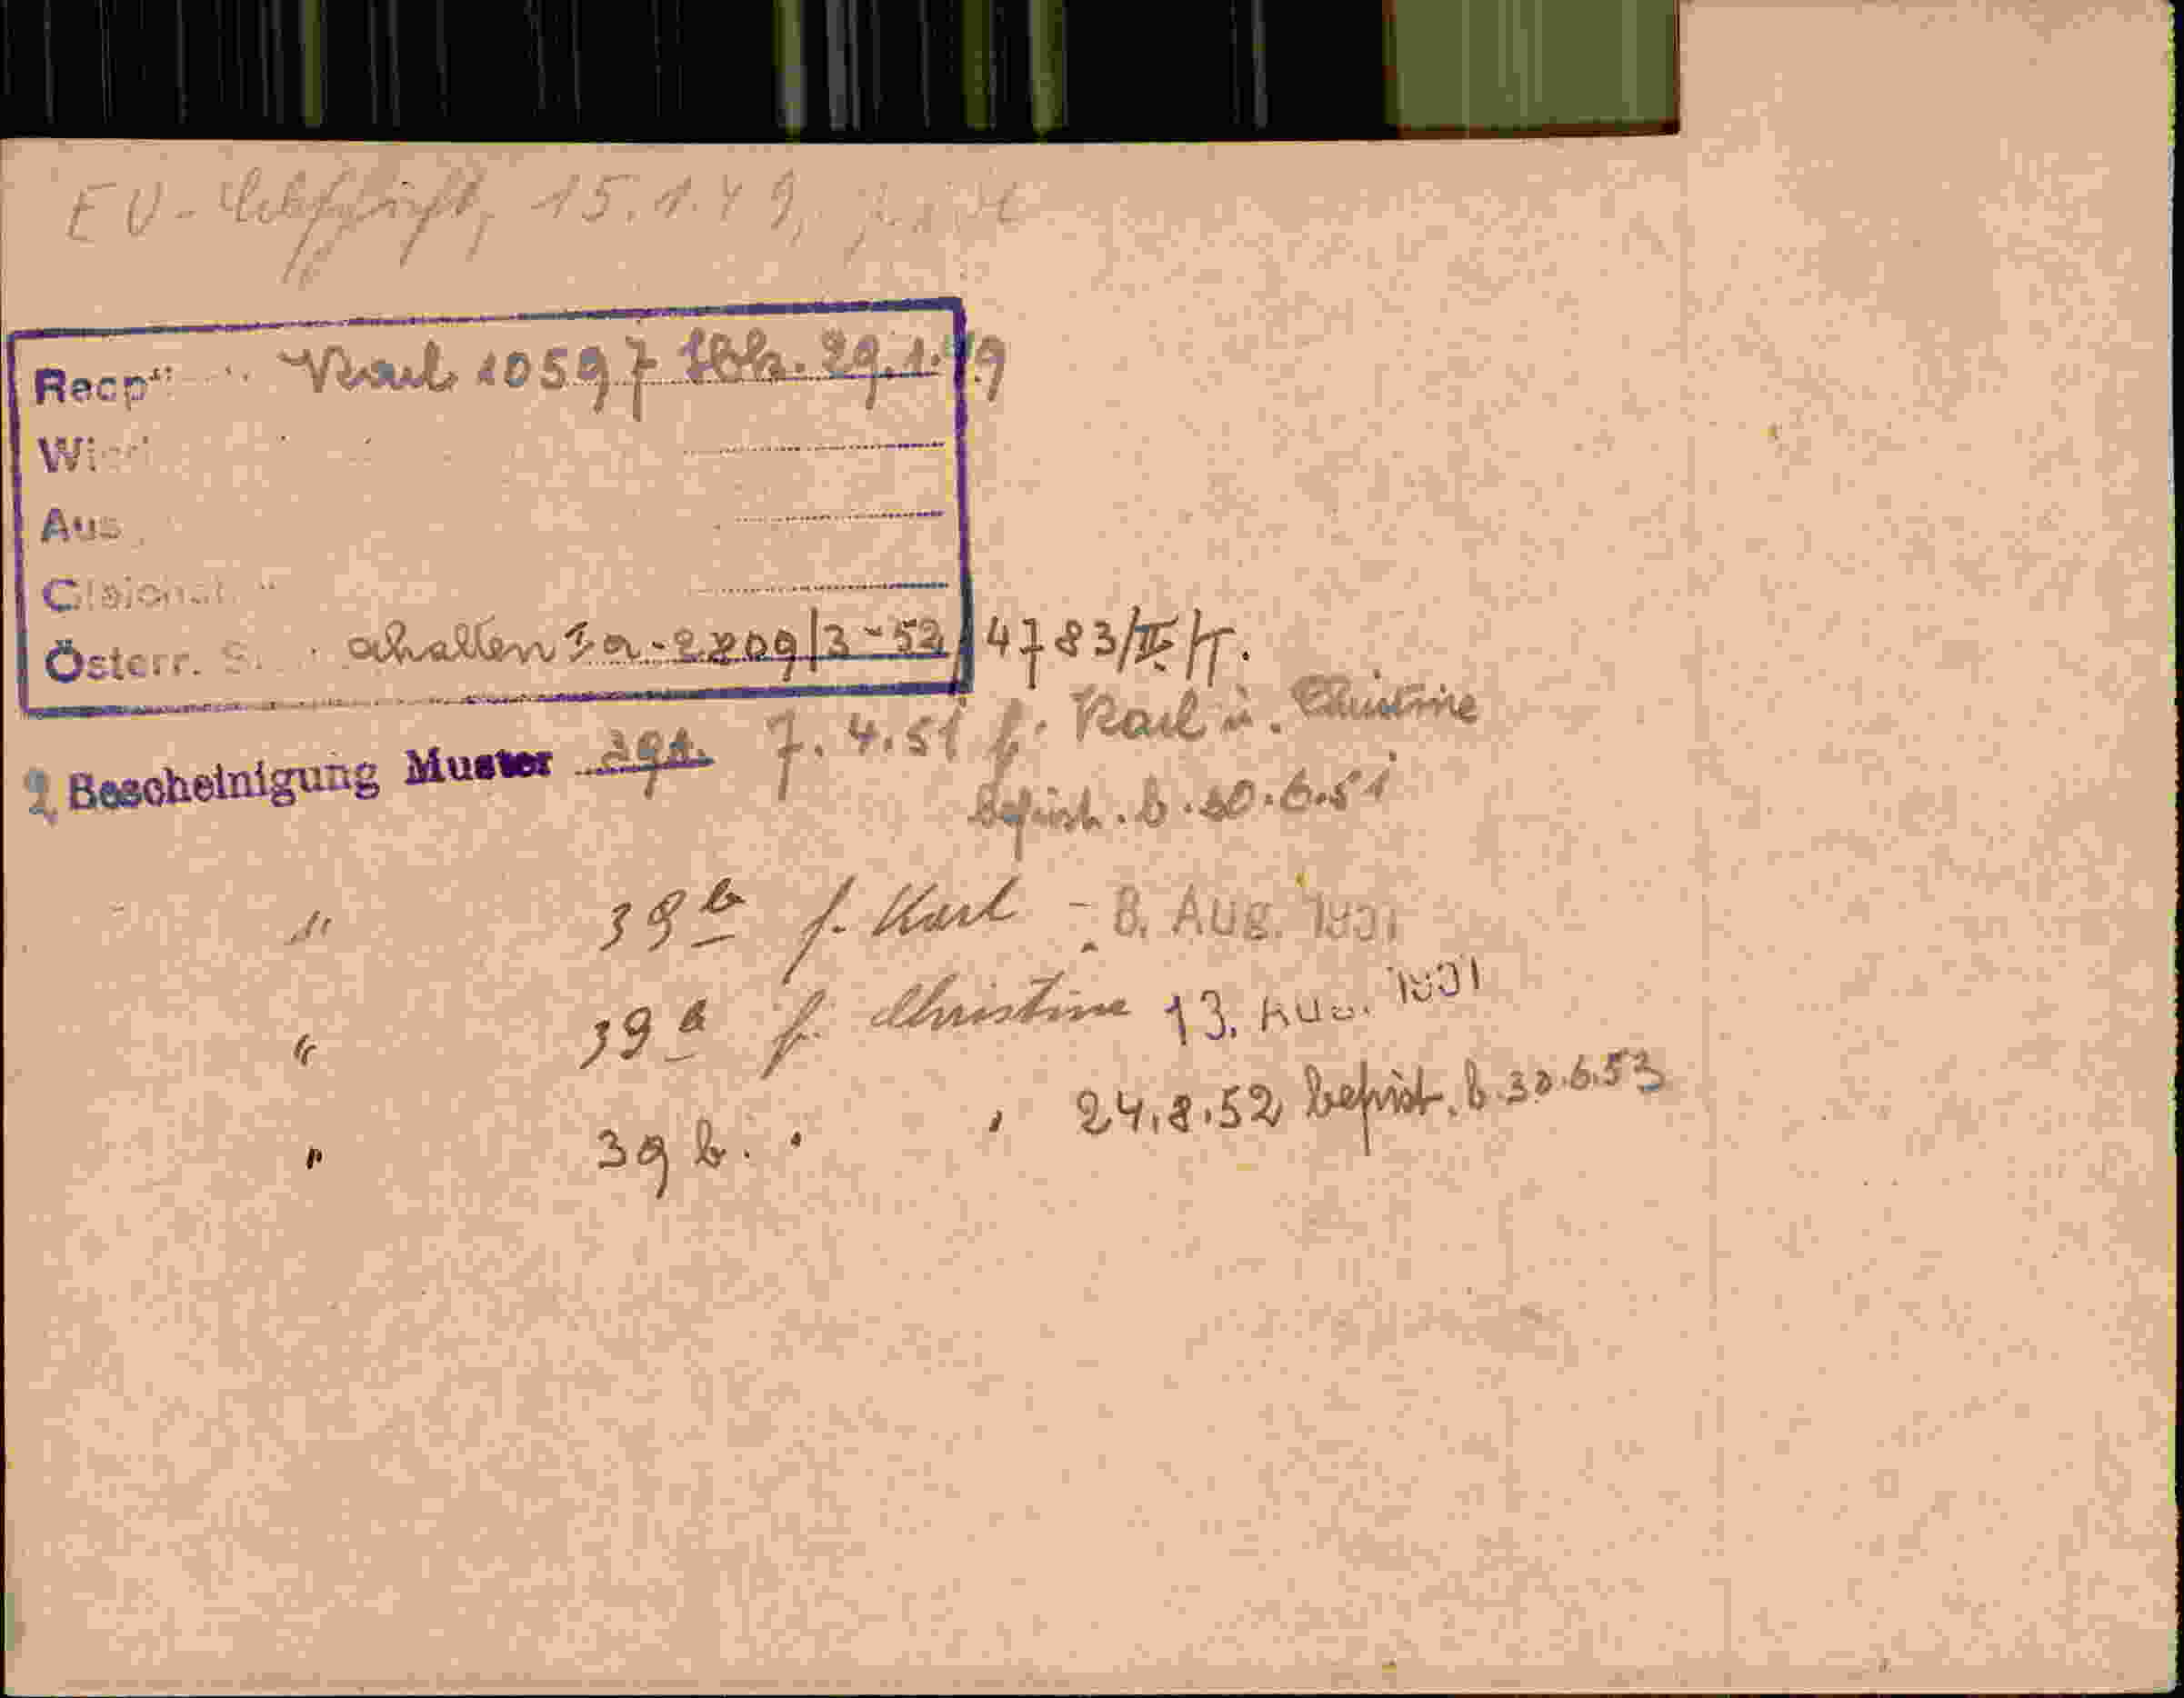 EU- Abschrift, 15.1.49,
Karl 10597 29.1.49
Aus
Österr. S. erhalten Ia-2809/3-52/4783/II/T.
2 Bescheinigung Muster 39a. 7.4.51 f. Karl u. Christine
befrist. b. 30.6.51
" 39b f. Karl - 8. Aug. 1951
" 39b f. Christine 13. AUG. 1951
" 39b. " " 24.8.52 befrist. b. 30.6.53